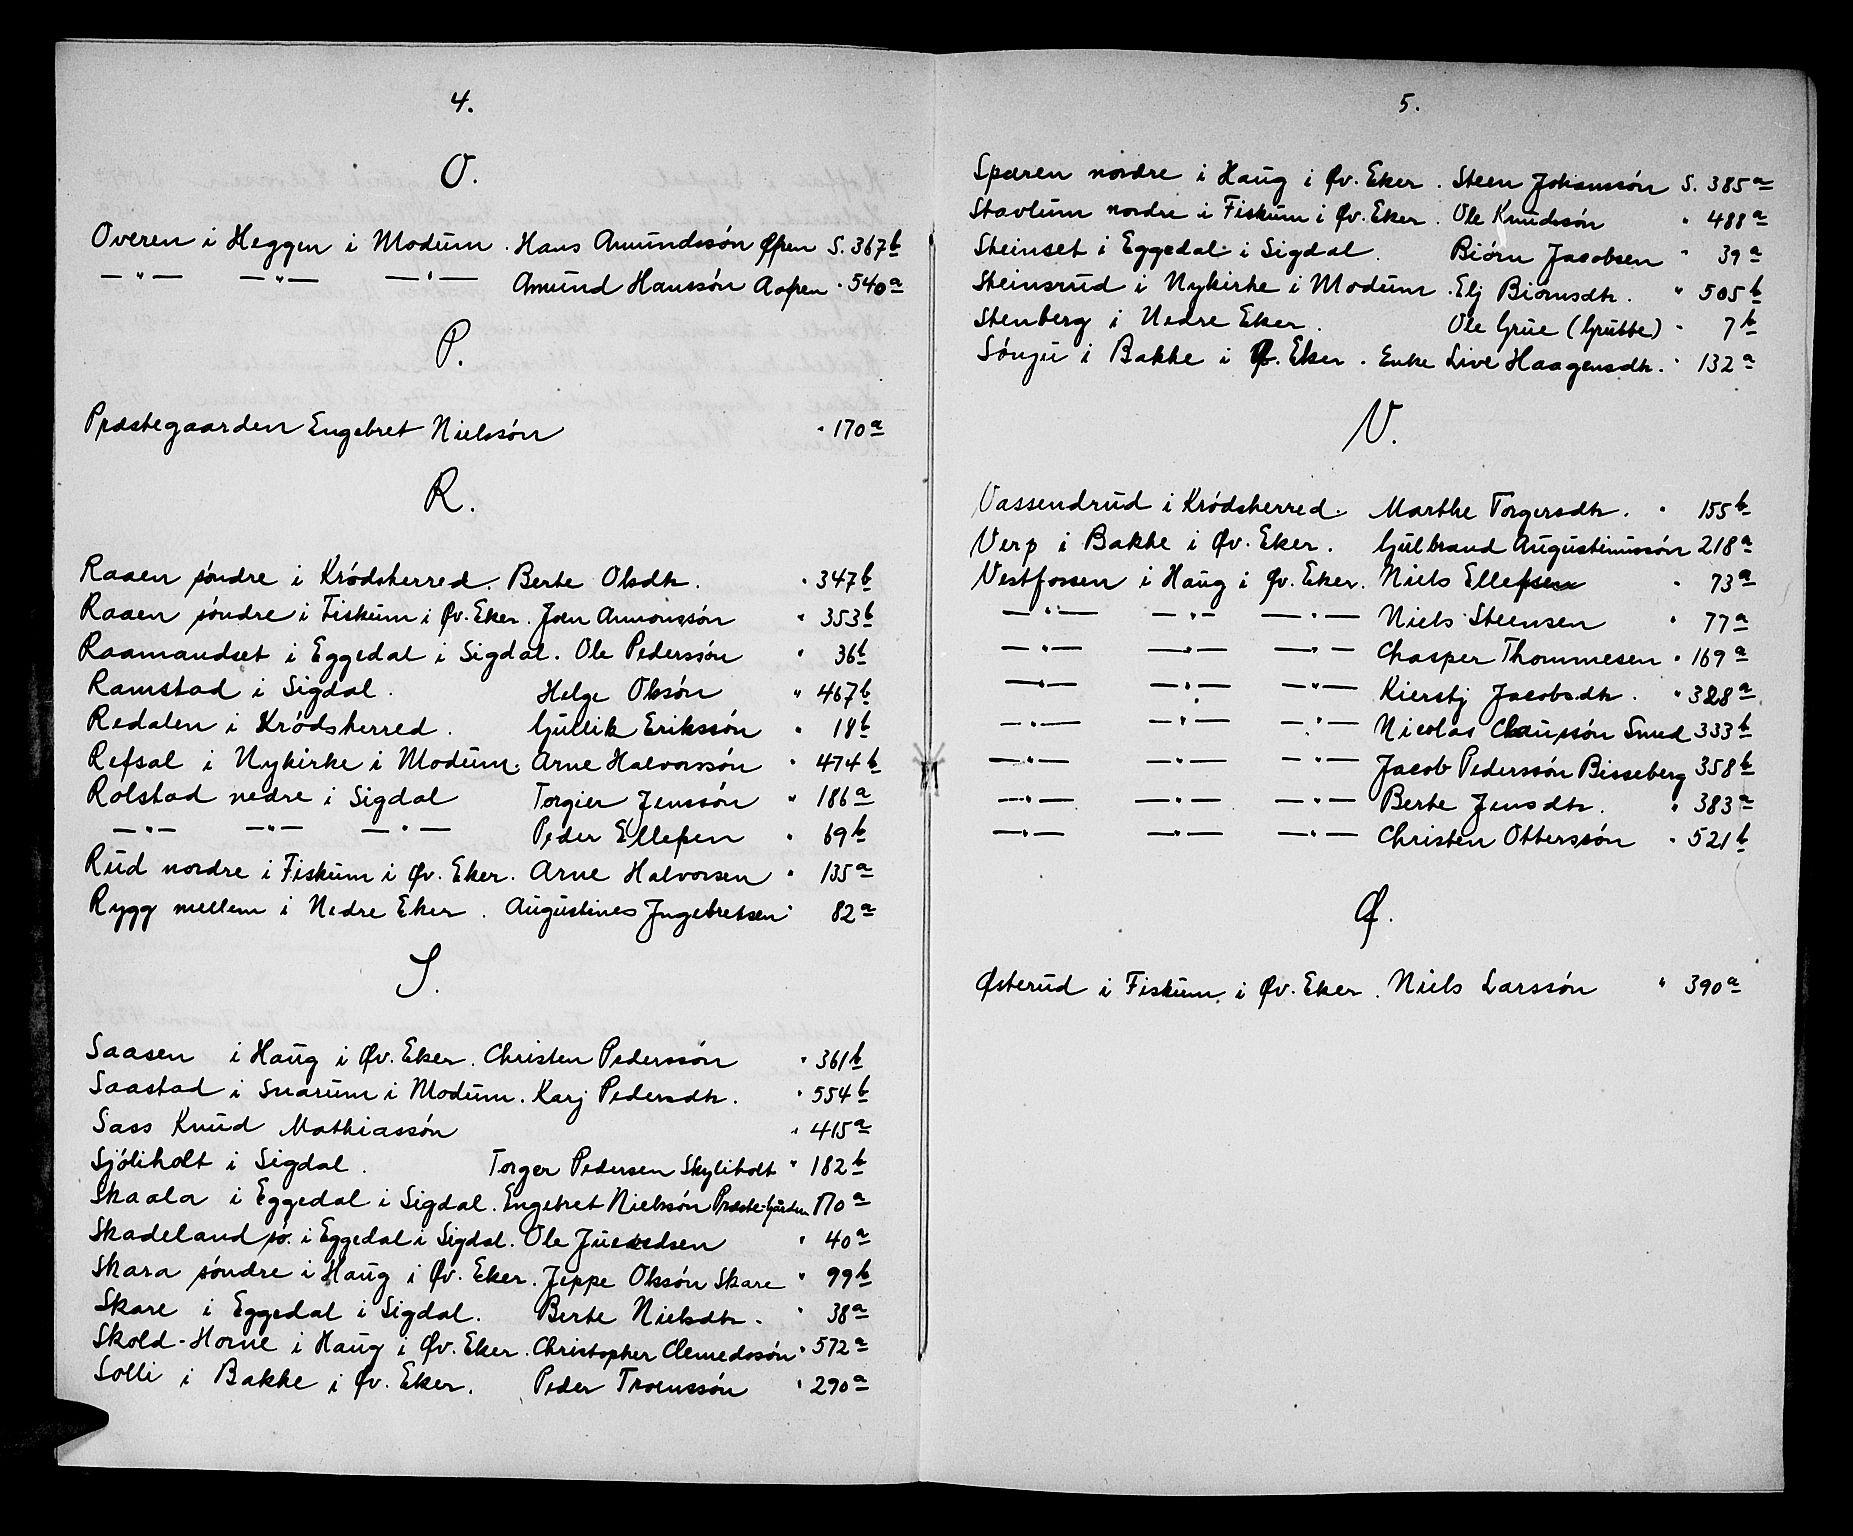 4.
O.
Overen i Heggen i Modum. Hans Amundssón Øfen S. 367b
— " — — " — — " — Amund Hanssón Aafen " 540a
P.
Præstegaarden Engebret Nielssón " 170a
R.
Raaen sóndre i Kródsherred. Berte Olsdtr. " 347b
Raaen sóndre i Fiskum i Øv. Eker. Joen Anmonssón " 353b
Raamandset i Eggedal i Sigdal. Ole Pederssón " 36b
Ramstad i Sigdal. Helge Olssón " 467b
Redalen i Kródsherred. Gullik Erikssón " 18b
Refsal i Nykirke i Modum. Arne Halvorssón " 474b
Rolstad nedre i Sigdal Torgier Jenssón " 186a
— " — — " — — " — Peder Ellefsen " 69b
Rud nordre i Fiskum i Øv. Eker. Arne Halvorsen " 135a
Rygg mellem i Nedre Eker. Augustines Ingebretsen " 82a
S.
Saasen i Haug i Øv. Eker. Christen Pederssón " 361b
Saastad i Snarum i Modum. Karj Pedersdtr. " 554b
Sass Knud Mathiassón " 415a
Sjóliholt i Sigdal. Torger Pedersen Skyliholt " 182b
Skaala i Eggedal i Sigdal. Engebret Nielssón Præste-Gården 170a
Skadeland sø. i Eggedal i Sigdal. Ole " 40a
Skara sóndre i Haug i Øv. Eker. Jeppe Olssón Skare " 99b
Skare i Eggedal i Sigdal. Berte Nielsdtr. " 38a
Skold-Horne i Haug i Øv. Eker. Christopher Clemedssón " 572a
Solli i Bakke i Øv. Eker. Peder Troenssón " 290a
5.
Spæren nordre i Haug i Øv. Eker. Steen Johanssón S. 385a
Stavlum nordre i Fiskum i Øv. Eker. Ole Knudssón " 488a
Steinset i Eggedal i Sigdal. Biórn Jacobsen " 39a
Steinsrud i Nykirke i Modum. Elj Biórnsdtr. " 505b
Stenberg i Nedre Eker. Ole Grue (Grubbe) " 7b
Sónju i Bakke i Ø. Eker. Enke Live Haagensdtr. " 132a
V.
Vassendrud i Kródsherred. Marthe Torgersdtr. " 155b
Verp i Bakke i Øv. Eker. Gulbrand Augustinussón 218a
Vestfossen i Haug i Øv. Eker. Niels Ellefsen " 73a
— " — — " — — " — Niels Steensen " 77a
— " — — " — — " — Chasper Thommesen " 169a
— " — — " — — " — Kierstj Jacobsdtr. " 328a
— " — — " — — " — Nicolas Claussón Smed 333b
— " — — " — — " — Jacob Pederssón Bisseberg 358b
— " — — " — — " — Berte Jensdtr. " 383a
— " — — " — — " — Christen Otterssón " 521b
Ø.
Østerud i Fiskum i Øv. Eker. Niels Larssón " 390a